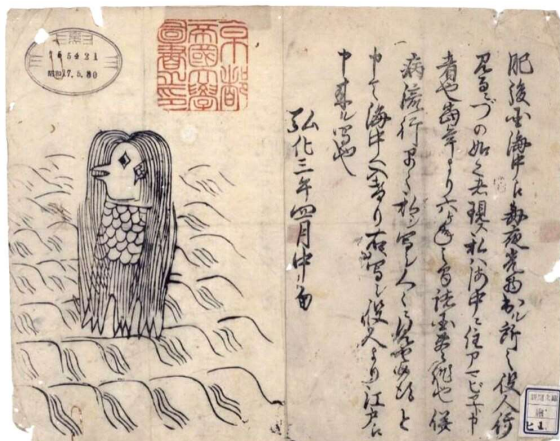 肥後国海中え毎夜光物出ル所之役人行
見るニづの如之者現ス私ハ海中ニ住アマビヱト申
者也當年より六ヶ年之間諸国豊作也併
病流行早々私ヲ写シ人々ニ見セ候得と
申て海中へ入けり右写シ役人より江戸え
申来ル写也
弘化三年四月中旬
京都
帝國大學
圖書之印
昭和17.5.30